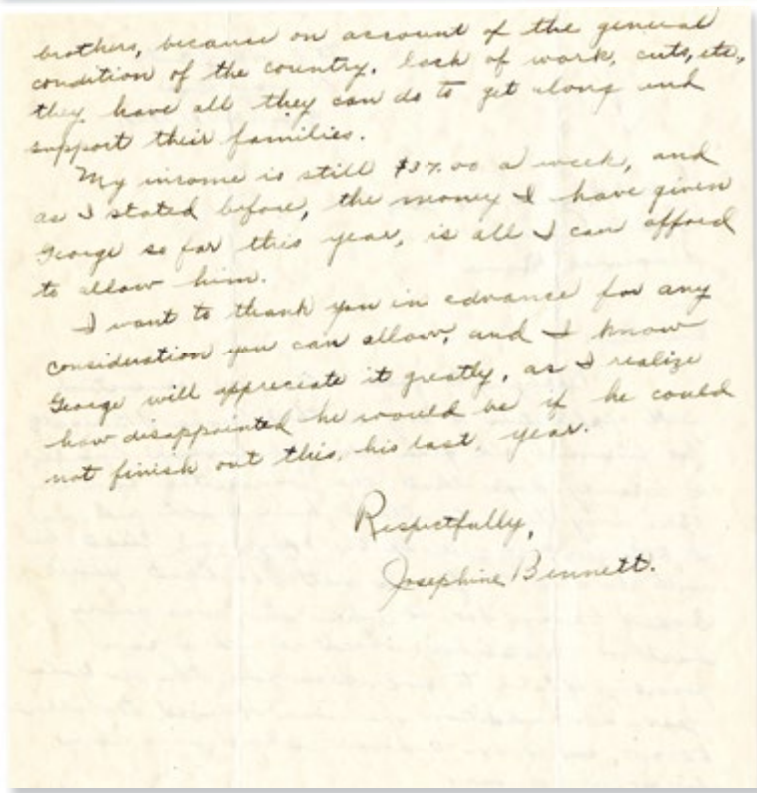 brothers, because on account of the general
condition of the country, lack of work, cuts, etc.,
they have all they can do to get along and
support their families.
My income is still $37.00 a week, and
as I stated before, the money I have given
George so far this year, is all I can afford
to allow him.
I want to thank you in advance for any
consideration you can allow, and I know
George will appreciate it greatly, as I realize
how disappointed he would be if he could
not finish out this, his last, year.
Respectfully,
Josephine Bennett.